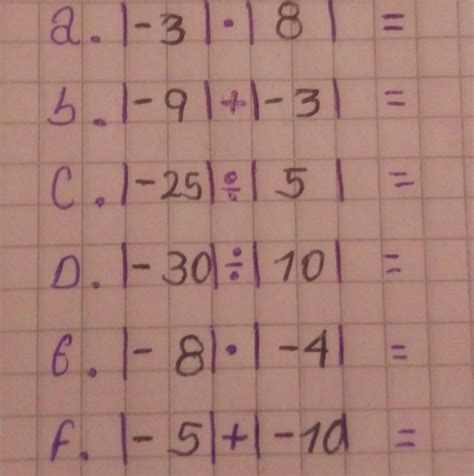 a. |-3|·|8| =
b. |-9|+|-3| =
C. |-25|÷|5| =
D. |-30|÷|10| =
E. |-8|·|-4| =
f. |-5|+|-10| =